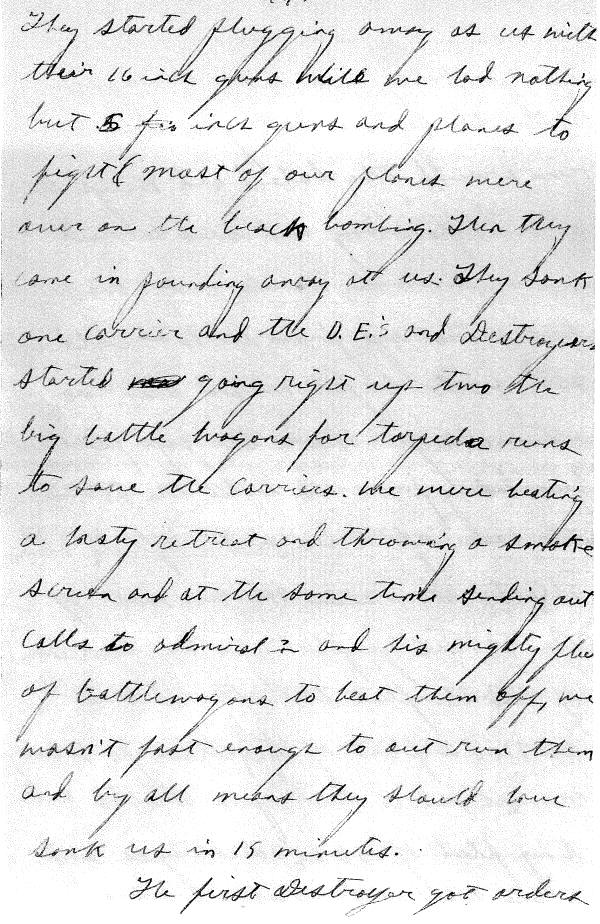 They started plugging away at us with
their 16 inch guns while we had nothing
but 5 inch guns and planes to
fight ( most of our planes were
over on the beach bombing. Then they
came in pounding away at us. They sank
one carrier and the D.E.'s and Destroyers
started going right up two the
big battle wagons for torpedo runs
to save the carriers. We were beating
a hasty retreat and throwing a smoke
screen and at the same time sending out
calls to admiral ? and his mighty flee
of battlewagons to beat them off, we
wasn't fast enough to out run them
and by all means they should have
sank us in 15 minutes.
The first Destroyer got orders